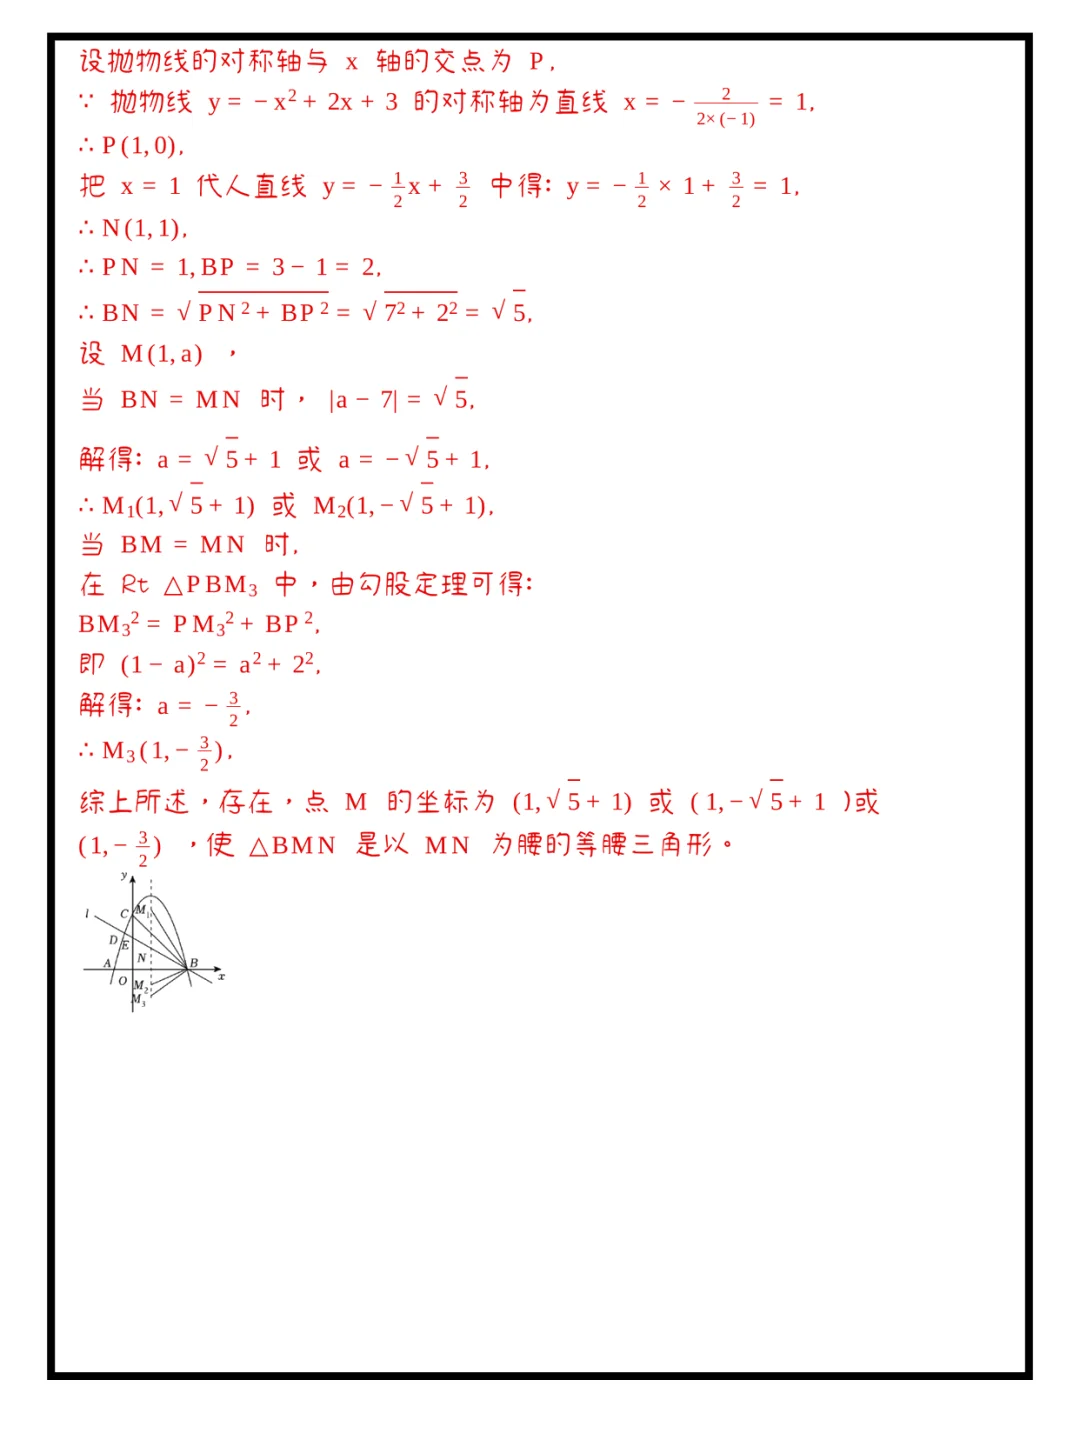 设抛物线的对称轴与 x 轴的交点为 P,
∵ 抛物线 y = − x² + 2x + 3 的对称轴为直线 x = − 2/(2×(−1)) = 1,
∴ P(1,0),
把 x = 1 代人直线 y = − 1/2 x + 3/2 中得: y = − 1/2 × 1 + 3/2 = 1,
∴ N(1,1),
∴ PN = 1, BP = 3 − 1 = 2,
∴ BN = √(PN² + BP²) = √(7² + 2²) = √5,
设 M(1,a) ，
当 BN = MN 时， |a − 7| = √5,
解得: a = √5 + 1 或 a = −√5 + 1,
∴ M₁(1,√5 + 1) 或 M₂(1,−√5 + 1),
当 BM = MN 时,
在 Rt △PBM₃ 中，由勾股定理可得:
BM₃² = PM₃² + BP²,
即 (1 − a)² = a² + 2²,
解得: a = − 3/2,
∴ M₃(1,− 3/2),
综上所述，存在，点 M 的坐标为 (1,√5 + 1) 或 (1,−√5 + 1)或
(1,− 3/2) ，使 △BMN 是以 MN 为腰的等腰三角形。
y
l C M₁
D E
A N B
O M₂ x
M₃